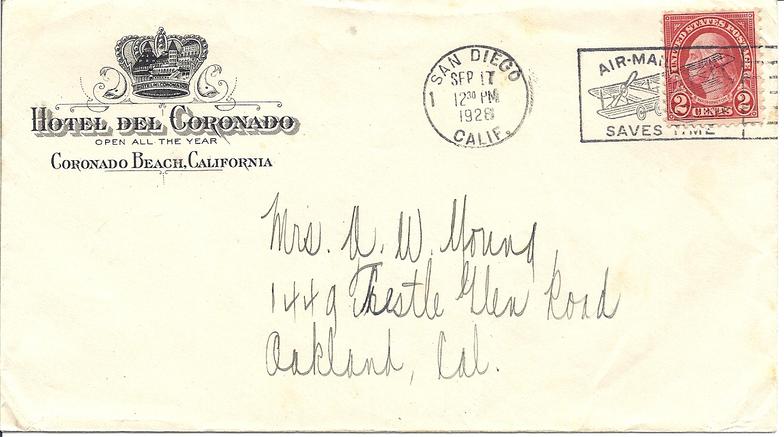 HOTEL DEL CORONADO
OPEN ALL THE YEAR
CORONADO BEACH, CALIFORNIA
SAN DIEGO
SEP 17
12 30 PM
1928
CALIF.
1
AIR-MAIL
SAVES TIME
UNITED STATES POSTAGE
2 CENTS 2
Mrs. A. W. Young
1449 Trestle Glen Road
Oakland, Cal.